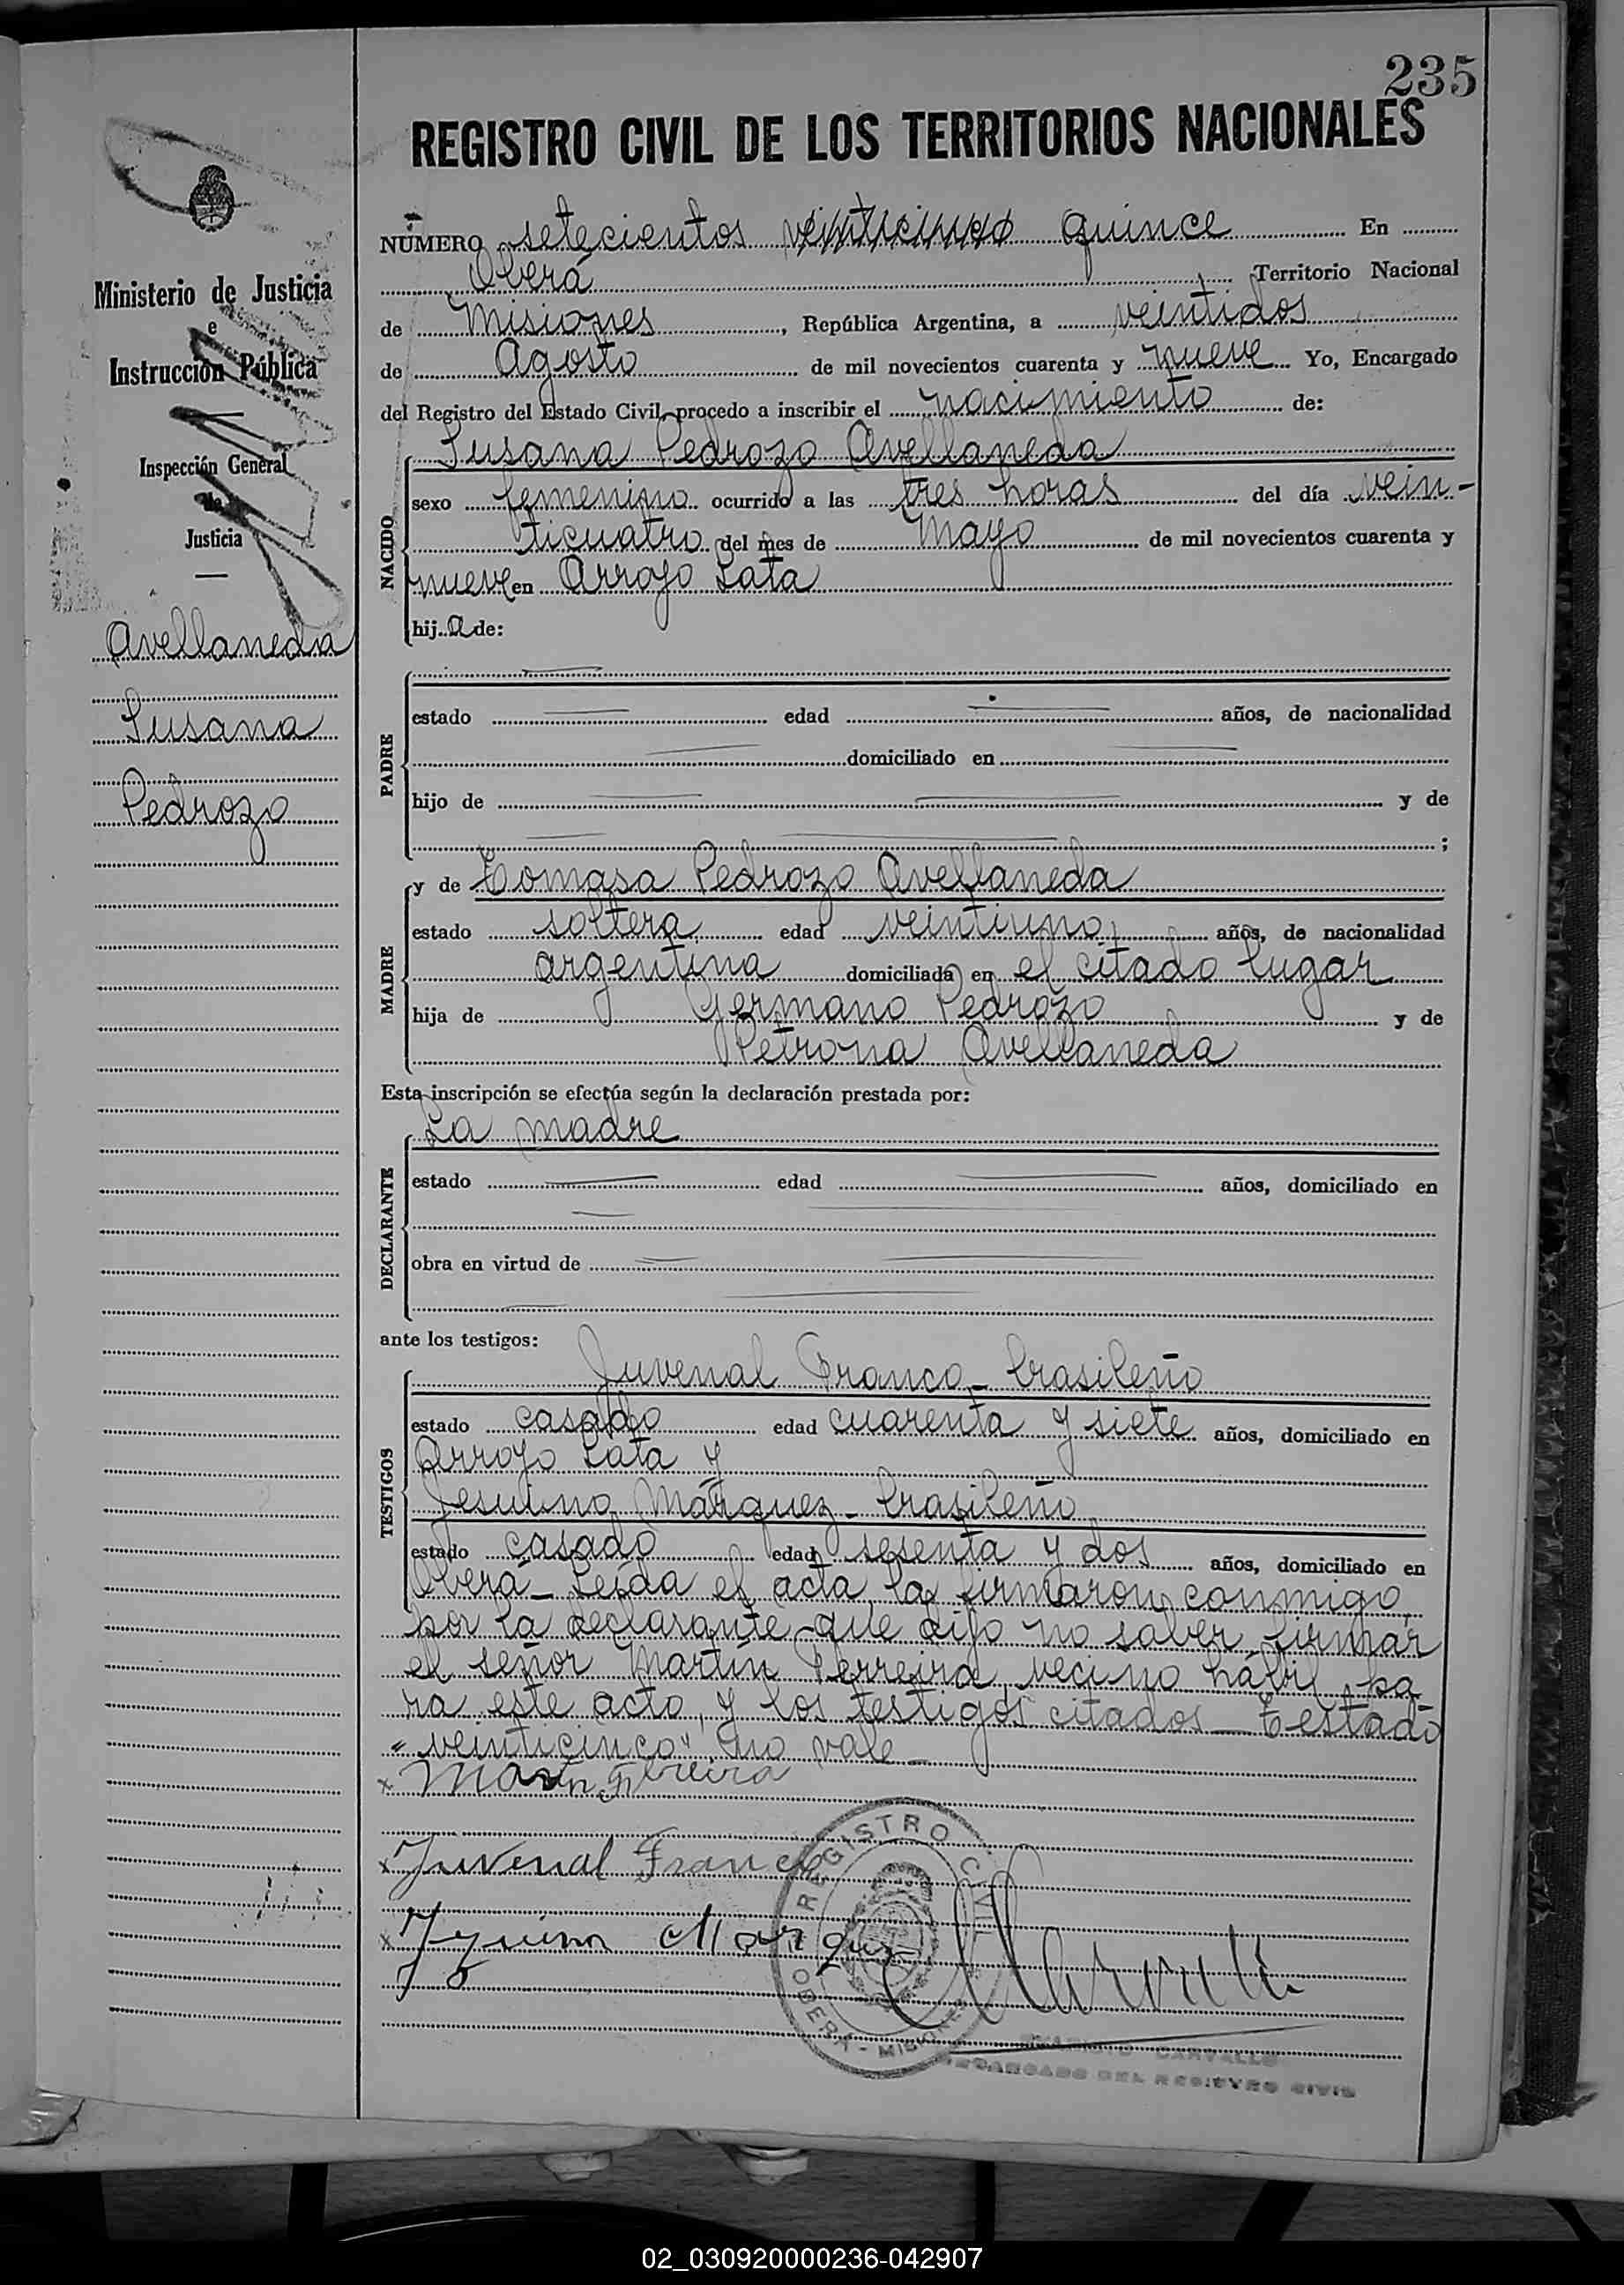 235
REGISTRO CIVIL DE LOS TERRITORIOS NACIONALES
NÚMERO setecientos veinticinco quince En
Oberá Territorio Nacional
de Misiones, República Argentina, a veintidos
de Agosto de mil novecientos cuarenta y nueve Yo, Encargado
del Registro del Estado Civil, procedo a inscribir el nacimiento de:
Susana Pedrozo Avellaneda
sexo femenino ocurrido a las tres horas del día vein-
ticuatro del mes de Mayo de mil novecientos cuarenta y
nueve en Arroyo Lata
hij a de:
NACIDO
estado edad años, de nacionalidad
domiciliado en
hijo de y de
;
PADRE
y de Tomasa Pedrozo Avellaneda
estado soltera edad veintiuno años, de nacionalidad
argentina domiciliada en el citado lugar
hija de Germano Pedrozo y de
Petrona Avellaneda
MADRE
Esta inscripción se efectúa según la declaración prestada por:
La madre
estado edad años, domiciliado en
obra en virtud de
DECLARANTE
ante los testigos:
Juvenal Franco - brasileño
estado casado edad cuarenta y siete años, domiciliado en
Arroyo Lata y
Jesuino Márquez - brasileño
estado casado edad sesenta y dos años, domiciliado en
TESTIGOS
Oberá - Leída el acta, la firmaron conmigo,
por la declarante que dijo no saber firmar
el señor Martín Ferreira, vecino hábil pa-
ra este acto, y los testigos citados - Testado
"veinticinco", no vale -
x Martin
x Juvenal Franco
x Marquez
REGISTRO CIVIL
OBERÁ - MISIONES
CARVALLO
ENCARGADO DEL REGISTRO CIVIL
Ministerio de Justicia
e
Instrucción Pública
Inspección General
de
Justicia
Avellaneda
Susana
Pedrozo
02_030920000236-042907